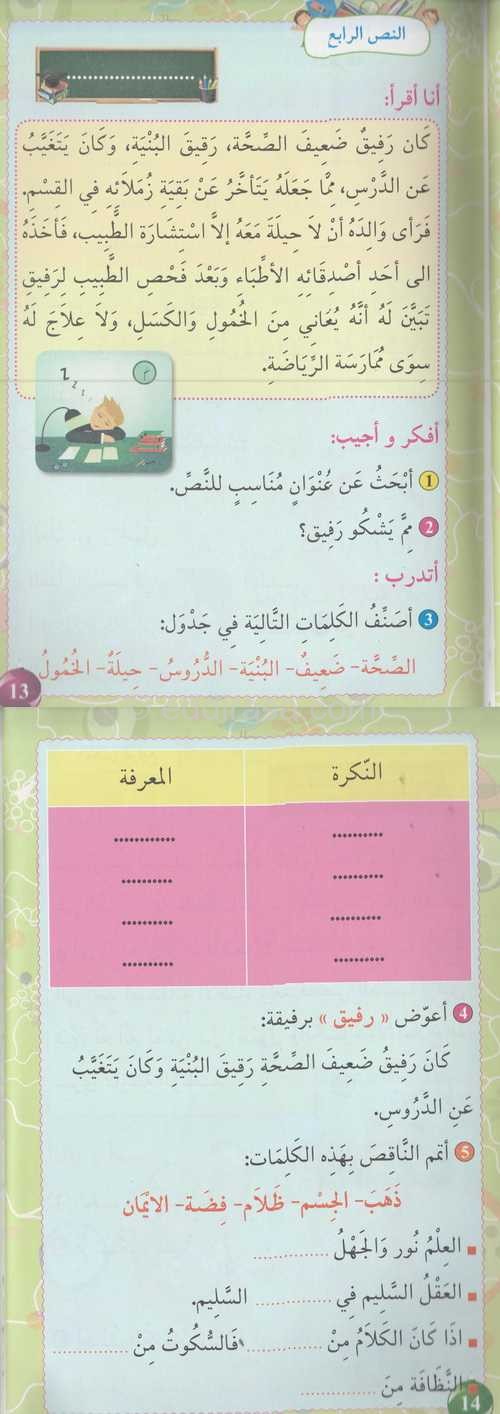 النص الرابع
............................
أنا أقرأ:
كَان رَفِيقٌ ضَعِيفَ الصِّحَّة، رَقِيقَ البُنْيَةِ، وَكَانَ يَتَغَيَّبُ
عَن الدَّرْسِ، مِمَّا جَعَلَهُ يَتَأخَّرُ عَنْ بَقِيَة زُمَلَائِهِ في القِسْمِ.
فَرَأى وَالِدُهُ أنْ لاَ حِيلَةَ مَعَهُ إلاَّ اسْتشَارَة الطَّبِيب، فَأخَذَهُ
الى أحَدِ أصْدِقَائِهِ الأطِبَّاء وَبَعْدَ فَحْصِ الطَّبِيبِ لرَفِيقٍ
تَبَيَّنَ لَهُ أنَّهُ يُعَانِي مِنَ الخُمُولِ وَالكَسَلِ، وَلاَ عِلاَجَ لَهُ
سِوَى مُمَارَسَة الرِّيَاضَةِ.
z z z z
أفكر و أجيب:
1 أبْحَثُ عَن عُنْوَانٍ مُنَاسِبٍ للنَّصِّ.
2 مِمَّ يَشْكُو رَفِيق؟
أتدرب :
3 أصَنِّفُ الكَلِمَاتِ التَّالِيَة فِي جَدْوَل:
الصِّحَّة- ضَعِيفٌ- البُنْيَة- الدُّرُوسُ- حِيلَةٌ- الخُمُولُ
13
النّكرة المعرفة
.......... ............
.......... ..........
.......... ..........
.......... ..........
4 أعوّض « رفيق » برفيقة:
كَانَ رَفِيقُ ضَعِيفَ الصِّحَّةِ رَقِيقَ البُنْيَةِ وَكَانَ يَتَغَيَّبُ
عَنِ الدَّرُوسِ.
5 أتمم النَّاقِصَ بِهَذِه الكَلِمَات:
ذَهَبَ- الجِسْم- ظَلاَم- فِضَة- الايْمَان
العِلْمُ نُور وَالجَهْلُ ................
العَقْلُ السَّلِيم فِي ................ السَّلِيم.
اذَا كَانَ الكَلَامُ مِنْ ................ فَالسُّكُوتُ مِنْ ................
النَّظَافَة مِنَ ................
14